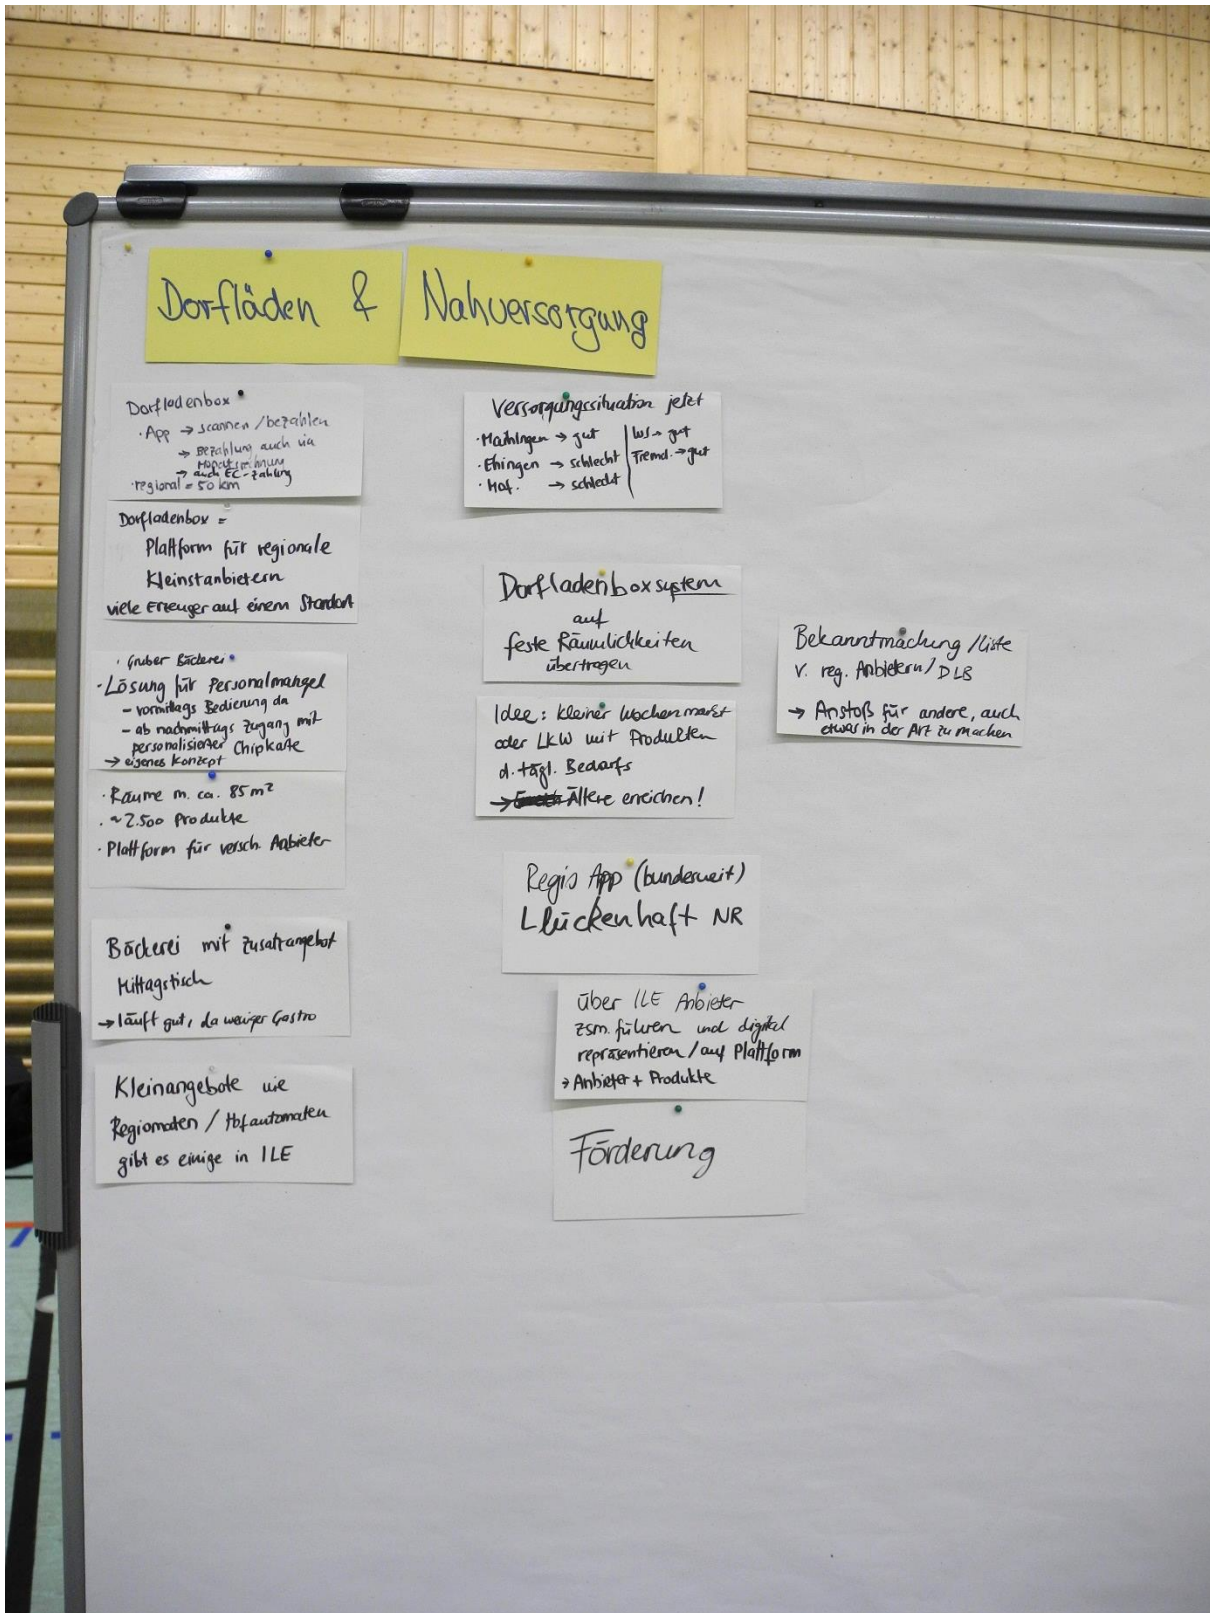 Dorfläden & Nahversorgung
Dorfladenbox
· App → scannen / bezahlen
→ Bezahlung auch via
Monatsrechnung
→ auch EC-Zahlung
· regional = 50 km
Dorfladenbox =
Plattform für regionale
Kleinstanbietern
viele Erzeuger auf einem Standort
· Gruber Bäckerei
· Lösung für Personalmangel
- vormittags Bedienung da
- ab nachmittags Zugang mit
personalisierter Chipkarte
→ eigenes Konzept
· Räume m. ca. 85 m²
· ~ 2.500 Produkte
· Plattform für versch. Anbieter
Bäckerei mit Zusatzangebot
Mittagstisch
→ läuft gut, da weniger Gastro
Kleinangebote wie
Regiomaten / Hofautomaten
gibt es einige in ILE
Versorgungssituation jetzt
· Maihingen → gut | WS → gut
· Ehingen → schlecht | Fremd. → gut
· Mar. → schlecht
Dorfladenboxsystem
auf
feste Räumlichkeiten
übertragen
Idee: kleiner Wochenmarkt
oder LKW mit Produkten
d. tägl. Bedarfs
→ Ältere erreichen!
Regio App (bundesweit)
Lückenhaft NR
über ILE Anbieter
zsm. führen und digital
repräsentieren / auf Plattform
→ Anbieter + Produkte
Förderung
Bekanntmachung / Liste
v. reg. Anbietern / DLB
→ Anstoß für andere, auch
etwas in der Art zu machen